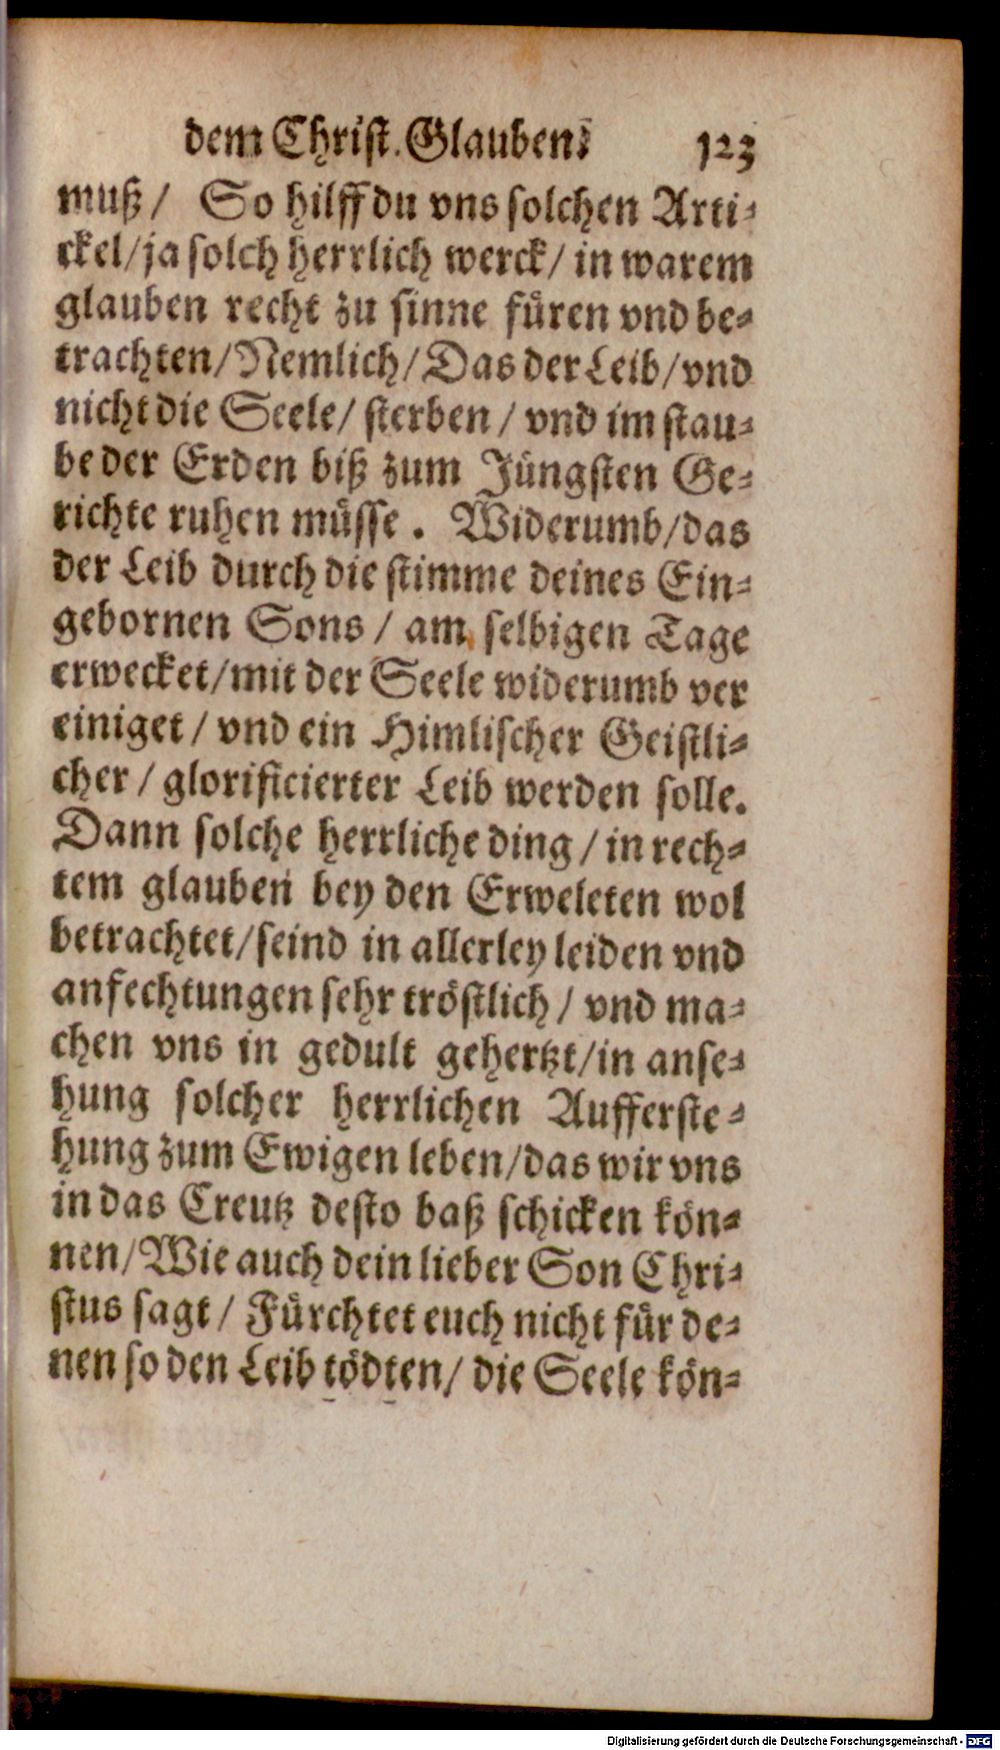 dem Christ. Glauben: 123
muß/ So hilff du vns solchen Arti-
ckel/ja solch herrlich werck/ in warem
glauben recht zu sinne füren vnd be-
trachten/Nemlich/Das der Leib/vnd
nicht die Seele/ sterben/ vnd im stau-
be der Erden biß zum Jüngsten Ge-
richte ruhen müsse. Widerumb/das
der Leib durch die stimme deines Ein-
gebornen Sons/ am selbigen Tage
erwecket/mit der Seele widerumb ver
einiget/ vnd ein Himlischer Geistli-
cher/ glorificierter Leib werden solle.
Dann solche herrliche ding/ in rech-
tem glauben bey den Erweleten wol
betrachtet/seind in allerley leiden vnd
anfechtungen sehr tröstlich/ vnd ma-
chen vns in gedult gehertzt/in anse-
hung solcher herrlichen Aufferste-
hung zum Ewigen leben/das wir vns
in das Creutz desto baß schicken kön-
nen/Wie auch dein lieber Son Chri-
stus sagt/ Fürchtet euch nicht für de-
nen so den Leib tödten/ die Seele kön-
Digitalisierung gefördert durch die Deutsche Forschungsgemeinschaft - DFG